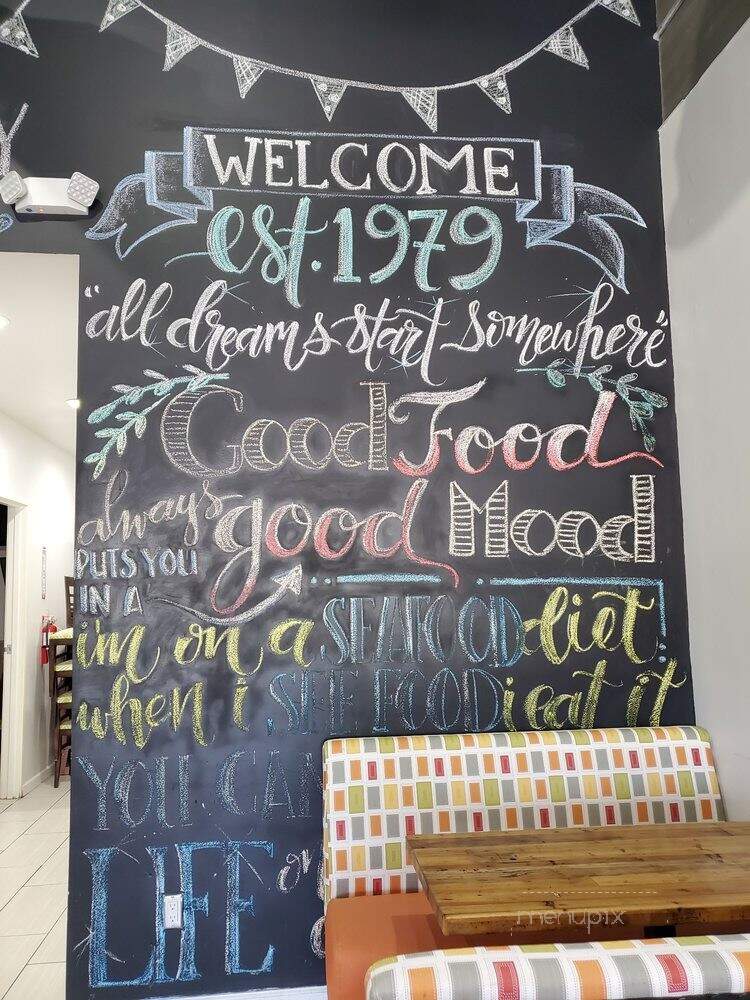 WELCOME
est. 1979
"all dreams start somewhere"
Good Food
always good Mood
PUTS YOU
IN A
i'm on a SEAFOOD diet!
when i SEE FOOD i eat it
YOU CAN
LIFE on
menupix